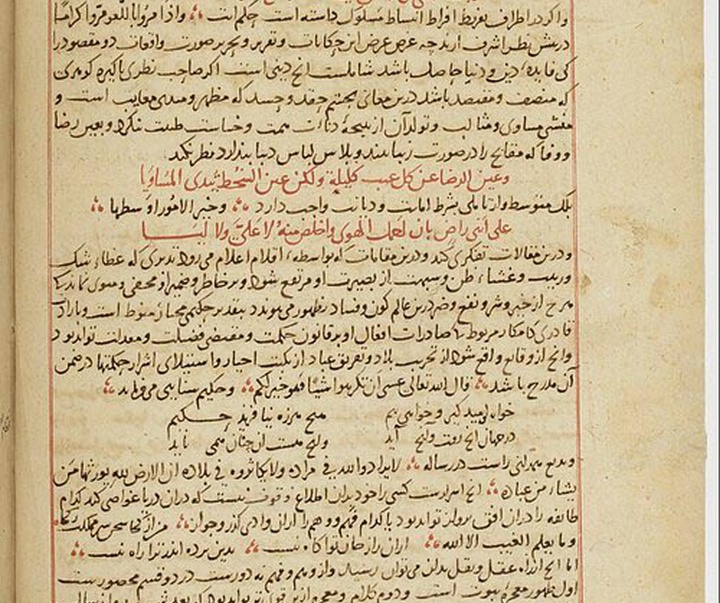 واکر در اطراف تفریط و افراط انبساط مسلوک داشته است حکم آیت واذا مروا باللغو مروا کراما
در پیش نظر اشرف آرند چه غرض از این حکایات و تقریر و تحریر صورت واقعات دو مقصود را
کی فایده دین و دنیا حاصل باشد شاملست انچ دینی است اکر صاحب نظری پاکیزه کوهری
که منصف و مقتصد باشد درین معانی بچشم حقد و حسد که مظهر و مبدی معایب است و
منشی مساوی و مثالب و تولد آن از نتیجهٔ دناءت همت و خساست طبیعت ننکرد و بعین رضا
و وفا که مقابح را در صورت زیبا بیند و پلاس لباس دیبا پندارد نظر نکند
وعین الرضا عن کل عیب کلیلة ولکن عین السخط تبدی المساویا
بلک متوسط وار تاملی بشرط امانت و دیانت واجب دارد وخیر الامور اوسطها
علی اننی راض بان احمل الهوی واخلص منه لا علی ولا لیا
و درین مقالات تفکری کند و درین مقامات که بواسطه اقلام اعلام می‌رود تدبری که غطاء شک
و ریب و غشاء ظن و شبهت از بصیرت او مرتفع شود و بر خاطر و ضمیر او محفی و مستور نماند که
هرچ از خیر و شر و نفع و ضر درین عالم کون و فساد بظهور می‌پیوندد بتقدیر حکیمی مختار منوط است و بارادت
قادری کامکار مربوط که صادرات افعال او بر قانون حکمت و مقتضی فضیلت و معدلت تواند بود
و انچ از وقایع واقع شود از تخریب بلاد و تفریق عباد از نکبت اخیار و استیلای اشرار حکمتها در ضمن
آن مدرج باشد قال الله تعالی عسی ان تکرهوا شیئا فهو خیر لکم و حکیم سنایی می‌فرماید
خواه امید کیر و خواهی بیم هیچ هرزه نیافرید حکیم
در جهان انچ رفت و انچ آید و انچ هست ان چنان همی باید
و بدیع همدانی راست در رساله لا یراد والله فی مراده ولا یکاثروه فی بلاده ان الارض لله یورثها من
یشاء من عباده انچ اسرارست کسی را خود بدان اطلاع و وقوف نیست که دران دریا غواصی کند کدام
طائفه را دران افق پرواز تواند بود یا کدام فهم و وهم را ازان وادی کذر و جواز
وما یعلم الغیب الا الله ازان راز جان تو آکاه نیست بدین پرده اندر ترا راه نیست
اما انچ از راه عقل و نقل بدان می‌توان رسید و از وهم و فهم نه دورست در دو قسم محصورست
اول ظهور معجزهٔ نبوت است و دوم کلام و معجزه ازین قوی‌تر تواند بود که بعد